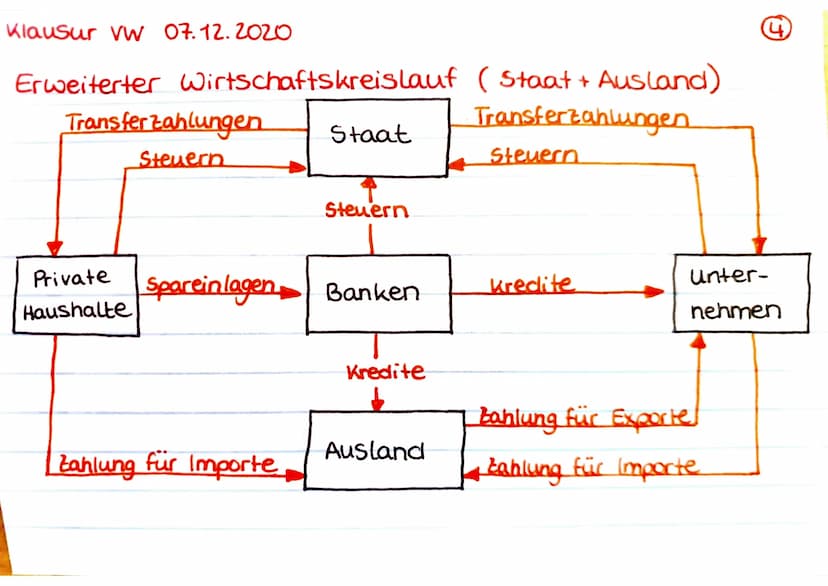 Klausur VW 07.12.2020
4
Erweiterter Wirtschaftskreislauf (Staat + Ausland)
Transferzahlungen
Staat
Transferzahlungen
Steuern
Steuern
Steuern
Private
Haushalte
Spareinlagen
Banken
Kredite
Unter-
nehmen
Kredite
Zahlung für Exporte
Ausland
Zahlung für Importe
Zahlung für Importe